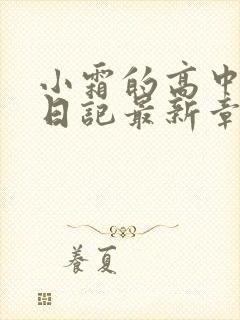 小霜的高中
日記最新章
養夏